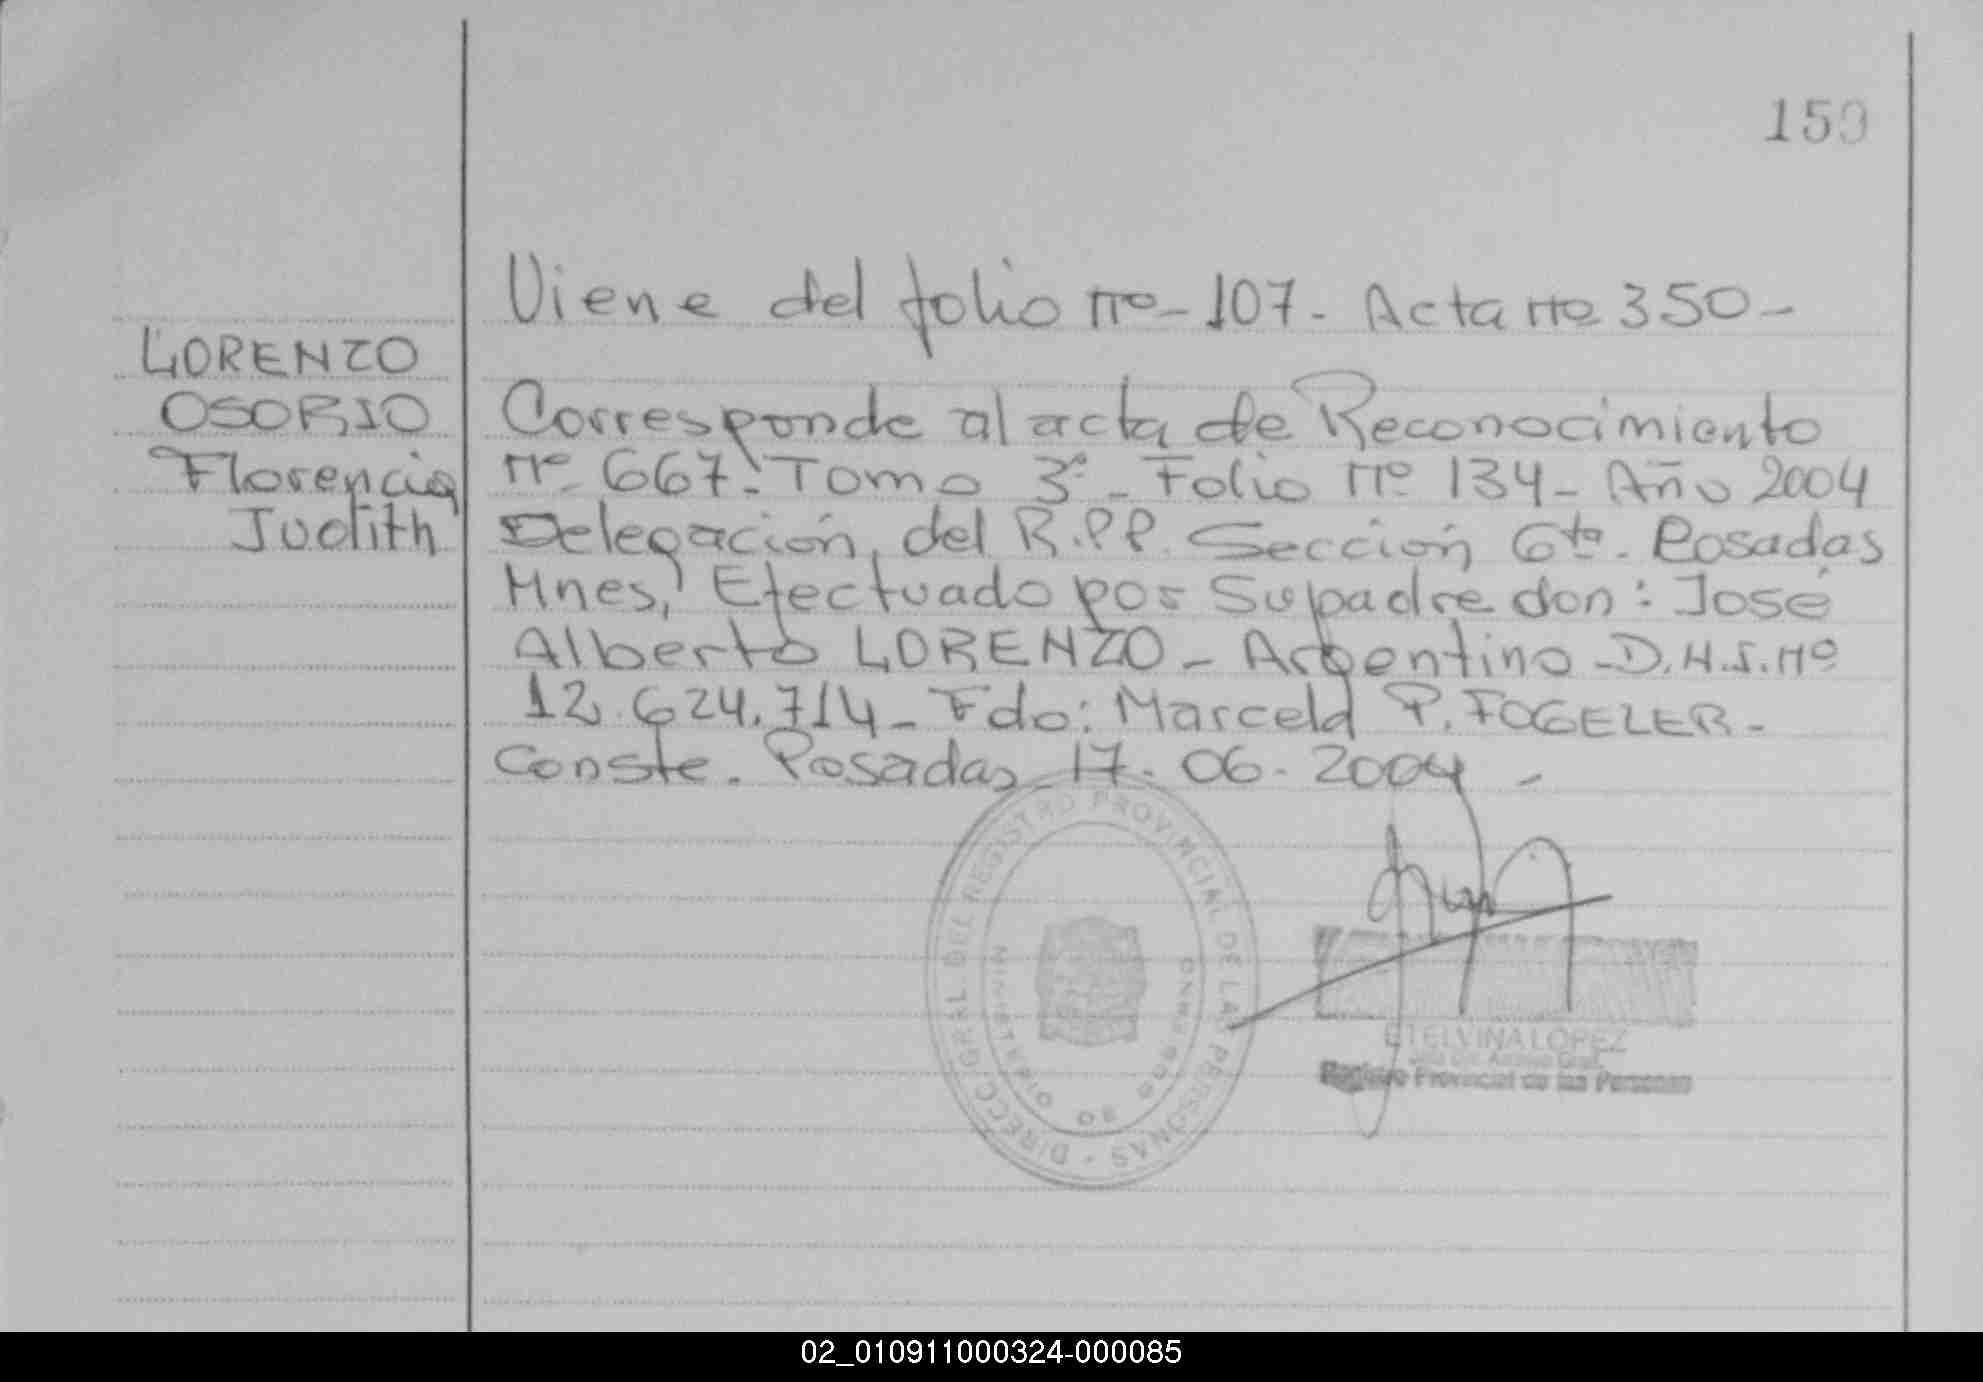 159
Viene del folio nº - 107 - Acta nº 350 -
LORENZO
OSORIO
Florencia
Judith
Corresponde al acta de Reconocimiento
nº 667. Tomo 3º - Folio nº 134 - Año 2004
Delegación, del R.P.P. Sección 6ta. Posadas
Mnes, Efectuado por Su padre don: José
Alberto LORENZO - Argentino - D.N.I. Nº
12.624.714 - Fdo: Marcela P. FOGELER -
Conste. Posadas 17. 06. 2004 -
DIRECC. GRAL DEL REGISTRO PROVINCIAL DE LAS PERSONAS
MINISTERIO DE GOBIERNO
ETELVINA LOPEZ
Registro Provincial de las Personas
02_010911000324-000085